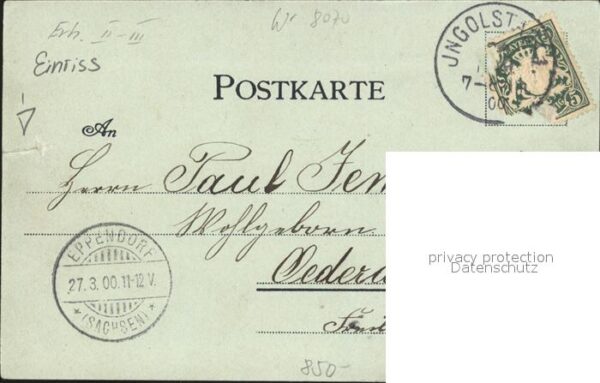 Wr 8070
Erh. II-III
Einriss
JNGOLST
7-8
00
BAYERN
5
POSTKARTE
An
Herrn Paul
Wohlgeborn
Oedera
EPPENDORF
27.3.00.11-12V.
*(SACHSEN)*
privacy protection
Datenschutz
850-